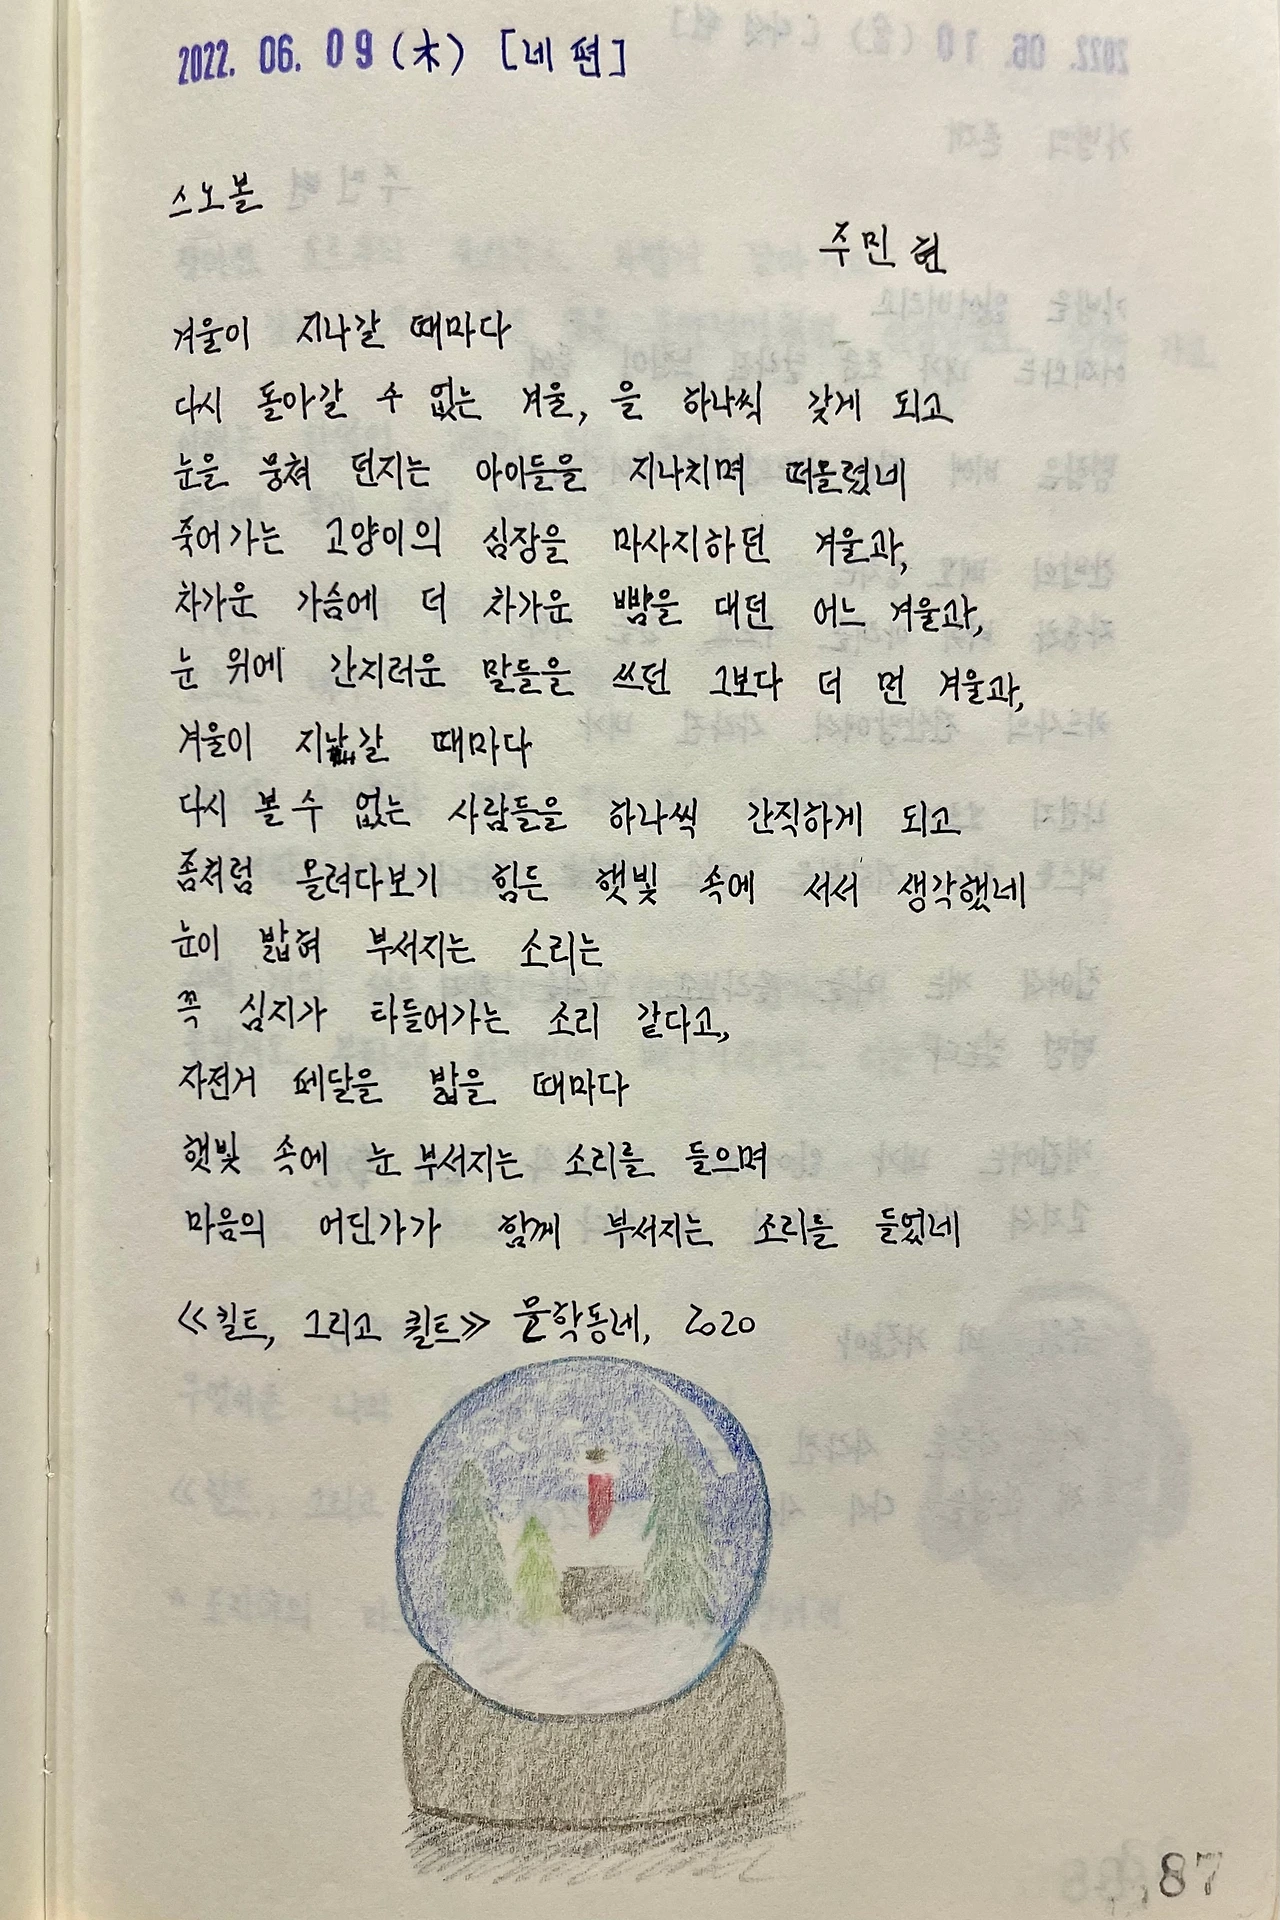 2022. 06. 09 (木) [네 편]
스노볼
주민현
겨울이 지나갈 때마다
다시 돌아갈 수 없는 겨울, 을 하나씩 갖게 되고
눈을 뭉쳐 던지는 아이들을 지나치며 떠올렸네
죽어가는 고양이의 심장을 마사지하던 겨울과,
차가운 가슴에 더 차가운 뺨을 대던 어느 겨울과,
눈 위에 간지러운 말들을 쓰던 그보다 더 먼 겨울과,
겨울이 지나갈 때마다
다시 볼 수 없는 사람들을 하나씩 간직하게 되고
좀처럼 올려다보기 힘든 햇빛 속에 서서 생각했네
눈이 밟혀 부서지는 소리는
꼭 심지가 타들어가는 소리 같다고,
자전거 페달을 밟을 때마다
햇빛 속에 눈 부서지는 소리를 들으며
마음의 어딘가가 함께 부서지는 소리를 들었네
≪킬트, 그리고 퀼트≫ 문학동네, 2020
87